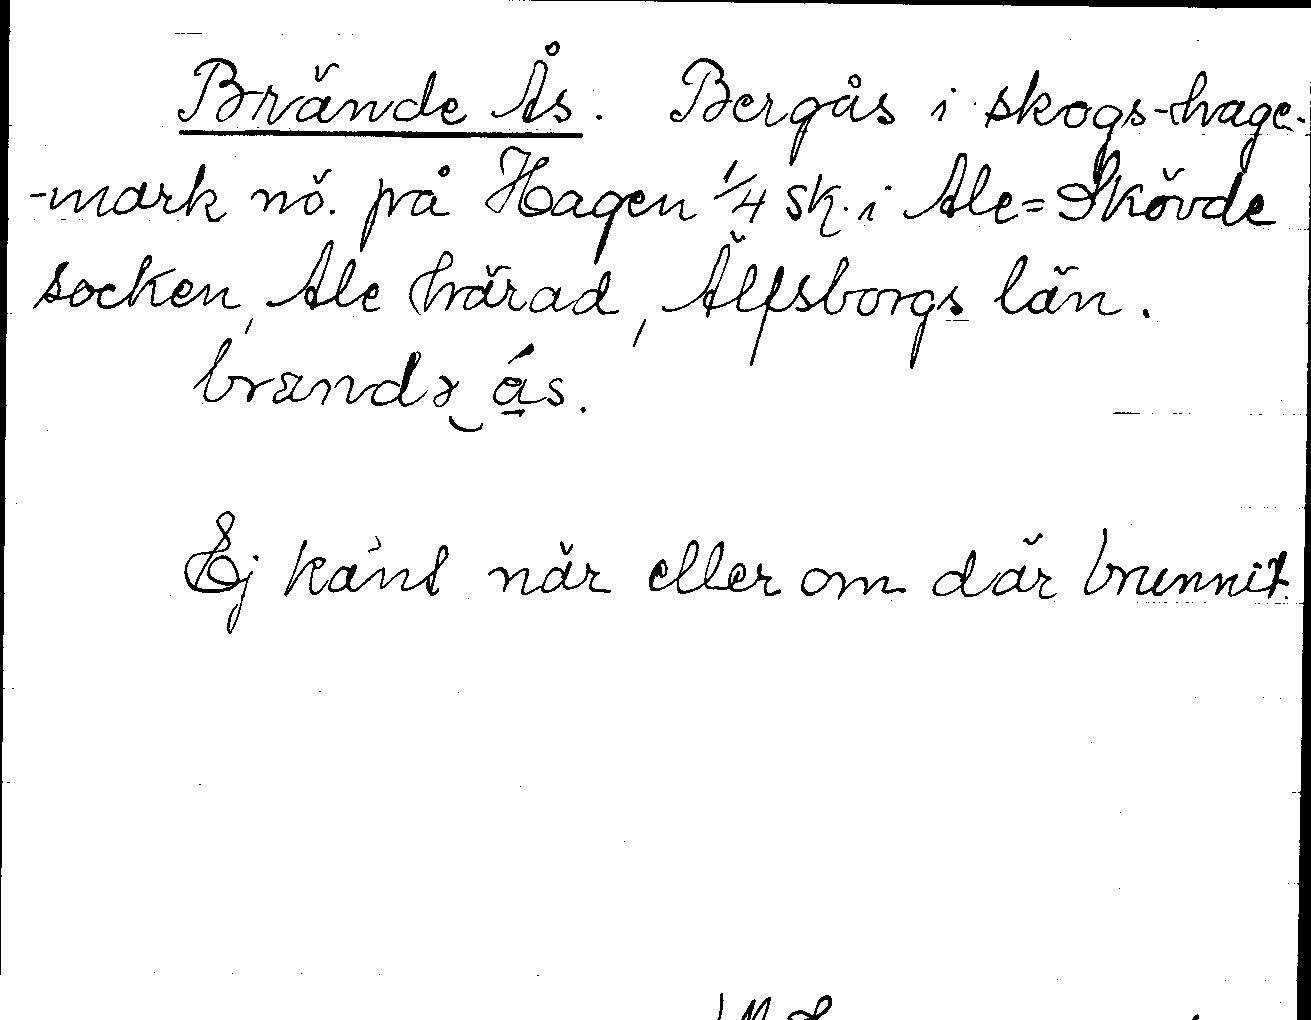 Brände Ås. Bergås i skogs-hage-
-mark nö. på Hagen 1/4 sk. i Ale=Skövde
socken, Ale härad, Älfsborgs län.
brændə ås.
Ej känt när eller om där brunnit.